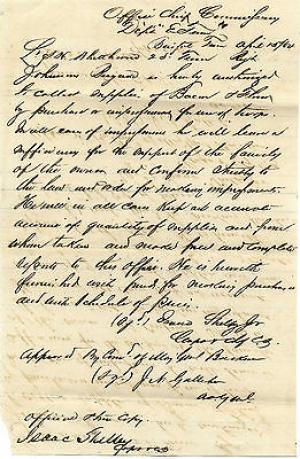 Office Chief Commissary
Dept E. Tenn
Bristol Tenn April 15/64
23d Tenn Regt
Johnsons Brigade is hereby authorized
to collect supplies of Bacon & Flour
by purchase or impressment for use of troops.
In all cases of impressment he will leave a
sufficiency for the support of the family
of the owner and conform strictly to
the law and orders for making impressments.
He will in all cases keep an accurate
account of quantity of supplies and from
whom taken and make full and complete
reports to this office. He is herewith
furnished with funds for making purchases
and with schedule of prices.
(Sgd) Isaac Shelby Jr
Capt & CS
Approved By Comd of Maj Genl Buckner
(Sgd) J. N. Galleher
A A Genl
Official true Copy
Isaac Shelby